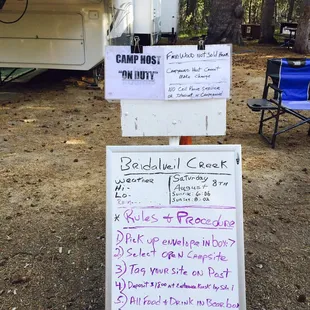 CAMP HOST
"ON DUTY"
FireWood not Sold Here
Campground Host Cannot
Make Change
No Cell Phone Service
or Internet in Campground
Bridalveil Creek
Weather
Hi-
Lo-
Saturday
August 8th
Sunrise 6:06
Sunset 8:02
* Rules & Procedure
1) Pick up envelope in box
2) Select open Campsite
3) Tag your site on Post
4) Deposit $18.00 at Entrance by Site 1
5) All Food & Drink in Bearbox